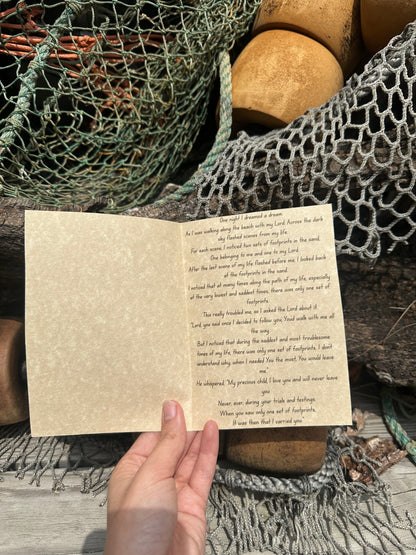 One night I dreamed a dream.
As I was walking along the beach with my Lord. Across the dark
sky flashed scenes from my life.
For each scene, I noticed two sets of footprints in the sand,
One belonging to me and one to my Lord.
After the last scene of my life flashed before me, I looked back
at the footprints in the sand.
I noticed that at many times along the path of my life, especially
at the very lowest and saddest times, there was only one set of
footprints.
This really troubled me, so I asked the Lord about it.
"Lord you said once I decided to follow you, You'd walk with me all
the way.
But I noticed that during the saddest and most troublesome
times of my life, there was only one set of footprints. I don't
understand why, when I needed You the most, You would leave
me."
He whispered, "My precious child, I love you and will never leave
you
Never, ever, during your trials and testings.
When you saw only one set of footprints,
It was then that I carried you"